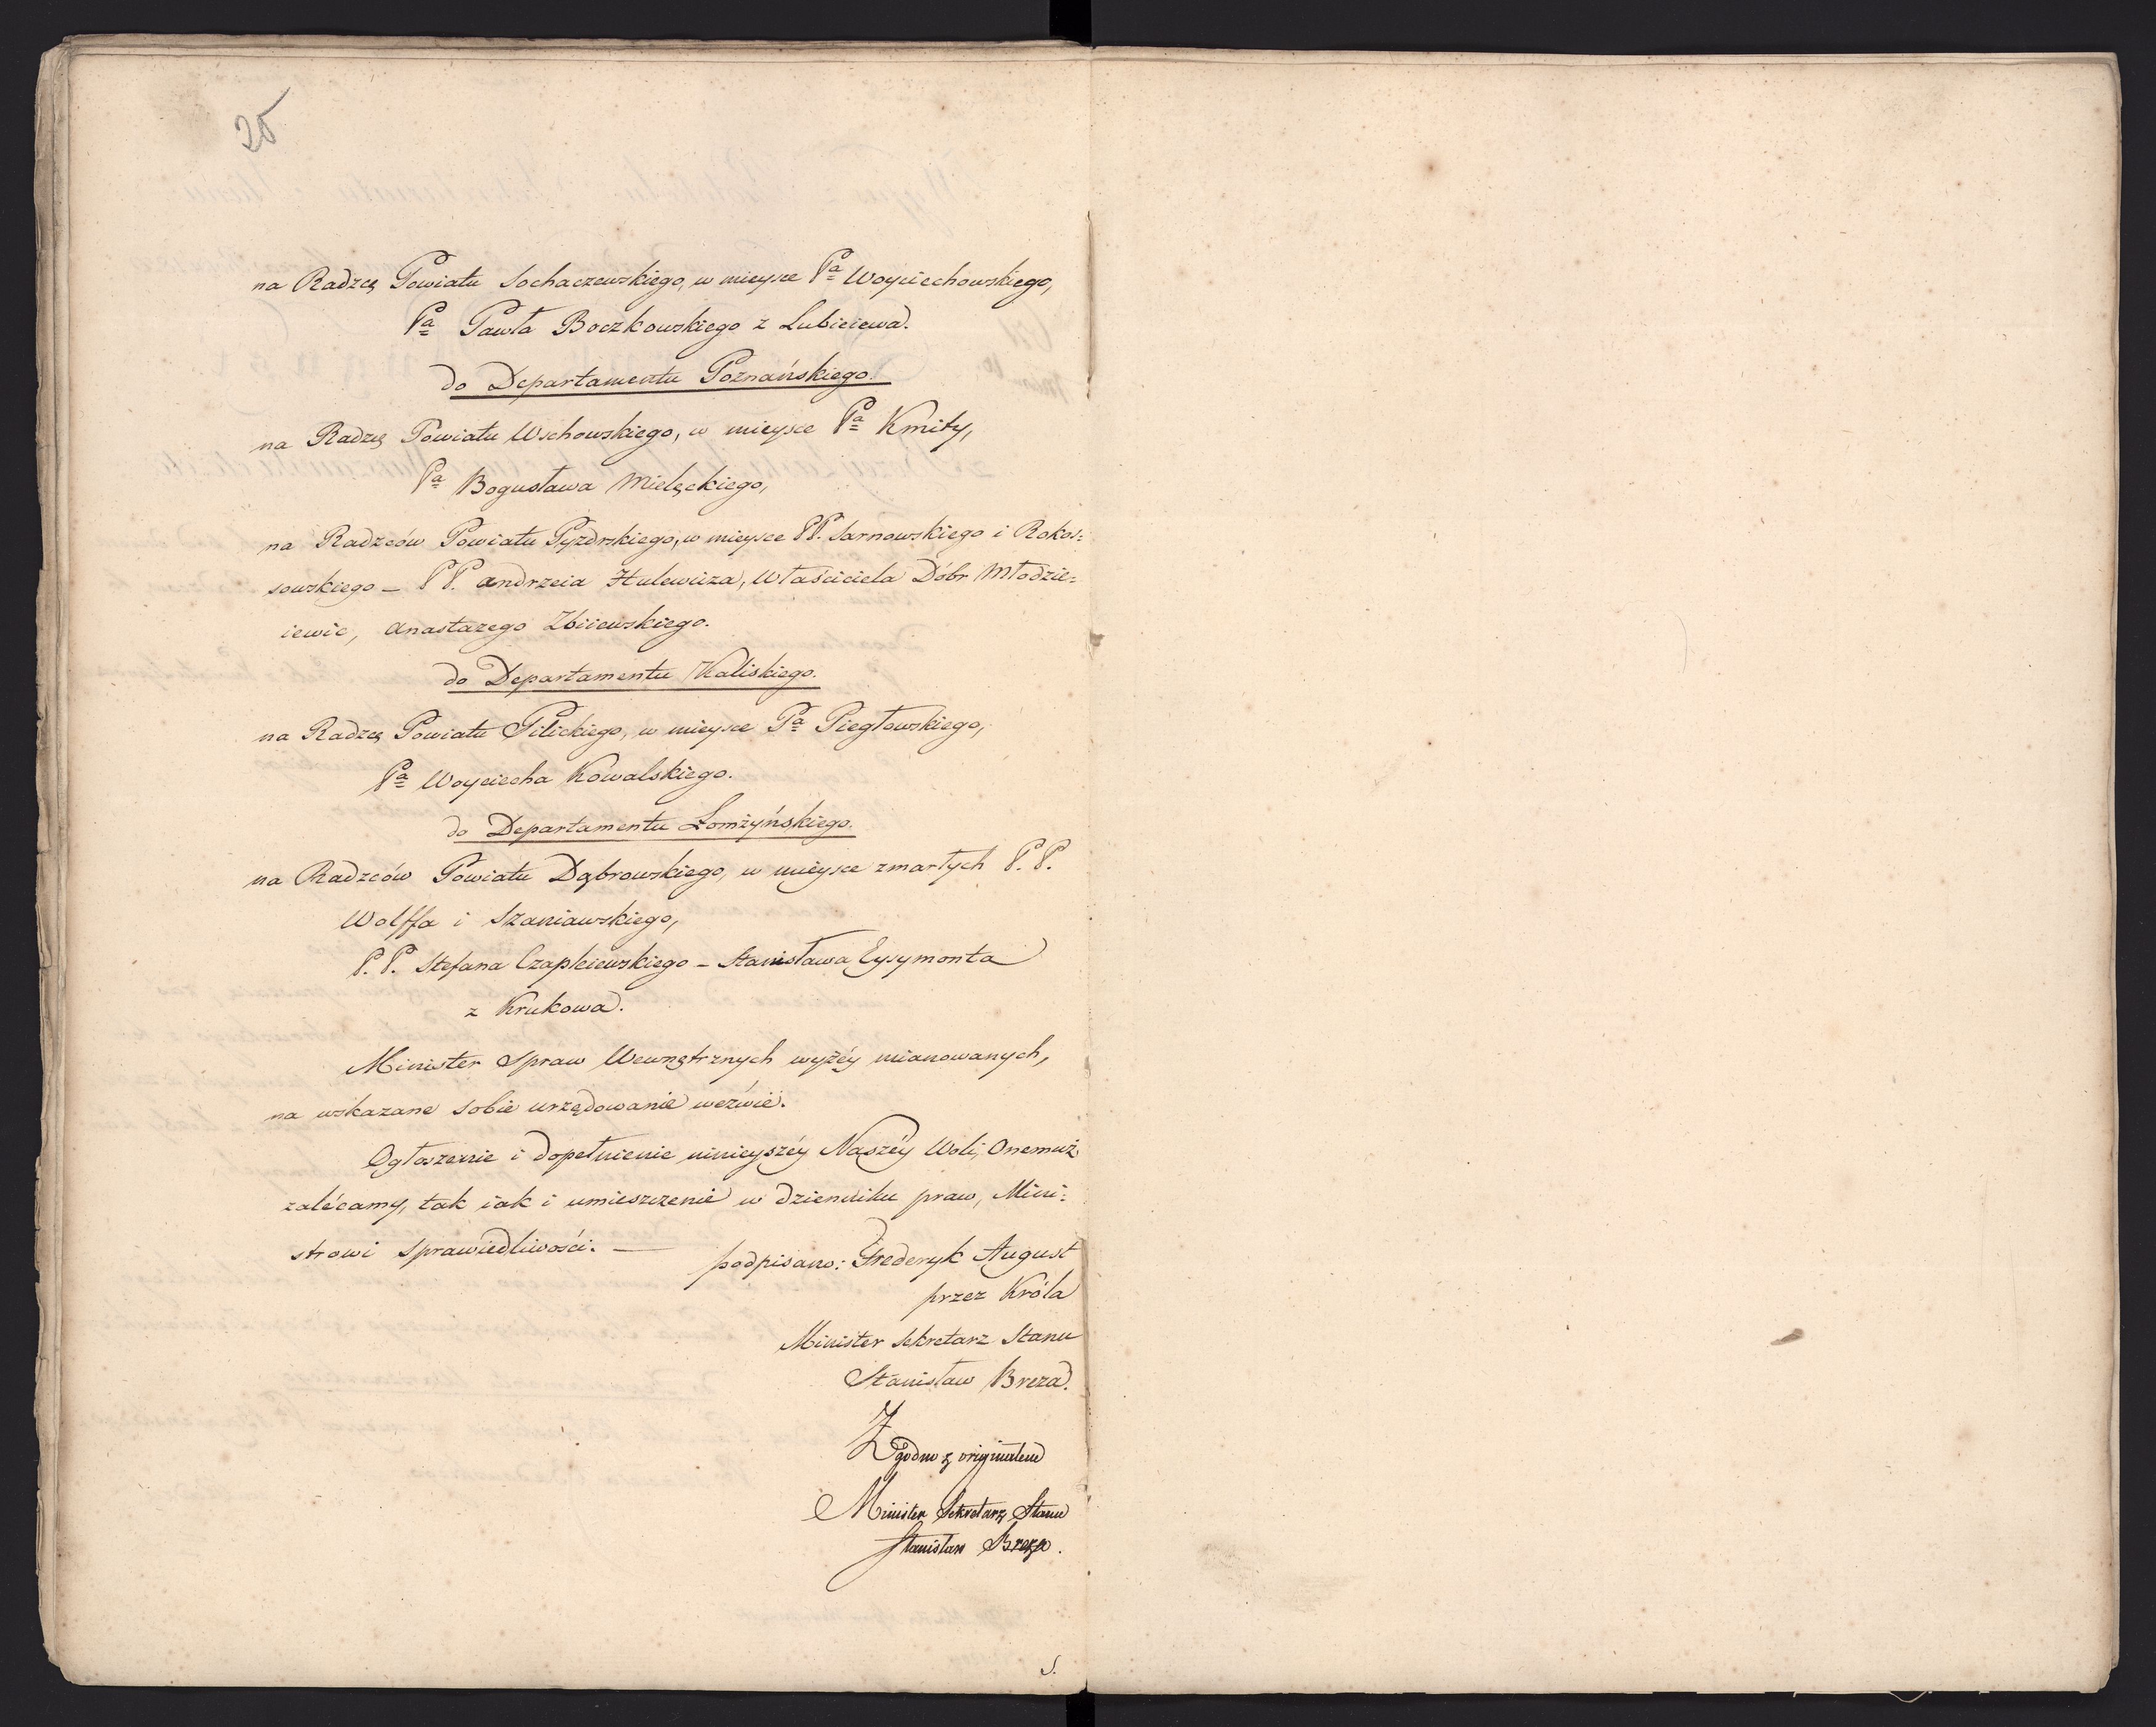 25
na Radzcę Powiatu Sochaczewskiego, w mieysce Pa Woyciechowskiego,
Pa Pawła Boczkowskiego z Lubieiewa.
do Departamentu Poznańskiego.
na Radzcę Powiatu Wschowskiego, w mieysce Pa Kmity,
Pa Bogusława Mielęckiego,
na Radzców Powiatu Pyzdrskiego, w mieysce PP. Sarnowskiego i Rokos=
sowskiego – PP. Andrzeia Hulewicza, Właściciela Dóbr Młodzie=
iewic, Anastazego Zbiiewskiego.
do Departamentu Kaliskiego.
na Radzcę Powiatu Pilickiego, w mieysce Pa Piegłowskiego,
Pa Woyciecha Kowalskiego.
do Departamentu Łomżyńskiego.
na Radzców Powiatu Dąbrowskiego, w mieysce zmarłych P. P.
Wolffa i Szaniawskiego,
P. P. Stefana Czapleiewskiego – Stanisława Eysymonta
z Krukowa.
Minister Spraw Wewnętrznych wyżéy mianowanych,
na wskazane sobie urzędowanie wezwie.
Ogłoszenie i dopełnienie ninieyszéy Naszéy Woli, Onemuż
zalécamy, tak iak i umieszczenie w dzienniku praw, Mini=
strowi Sprawiedliwości. —
podpisano: Frederyk August
przez Króla
Minister Sekretarz Stanu
Stanisław Breza.
Zgodno z originałem
Minister Sekretarz Stanu
Stanisław Breza.
S.